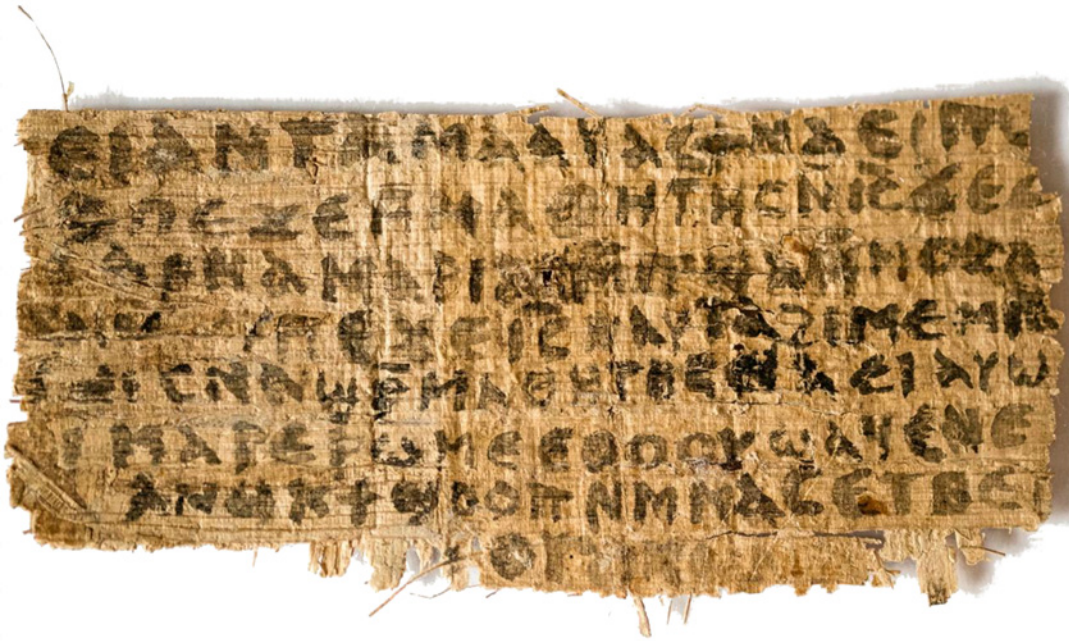 ⲉⲓ ⲁⲛ ⲧⲁⲙⲁⲁⲩ ⲁⲥϯ ⲛⲁⲉⲓ ⲡ
ⲡⲉϫⲉ ⲙ̄ⲙⲁⲑⲏⲧⲏⲥ ⲛ̄ⲓ̄ⲥ̄ ϫⲉ ⲥ
ⲁⲣⲛⲁ ⲙⲁⲣⲓⲁⲙ
ⲡⲉϫⲉ ⲓ̄ⲥ̄ ⲛⲁⲩ ⲧⲁϩⲓⲙⲉ ⲙⲛ̄
ⲥⲛⲁϣⲣ̄ⲙⲁⲑⲏⲧⲏⲥ ⲛⲁⲉⲓ ⲁⲩⲱ
ⲓ ⲙⲁⲣⲉⲣⲱⲙⲉ ⲉⲑⲟⲟⲩ ϣⲁϥⲉ ⲛⲉ
ⲁⲛⲟⲕ ϯϣⲟⲟⲡ ⲛⲙ̄ⲙⲁⲥ ⲉⲧⲃⲉ